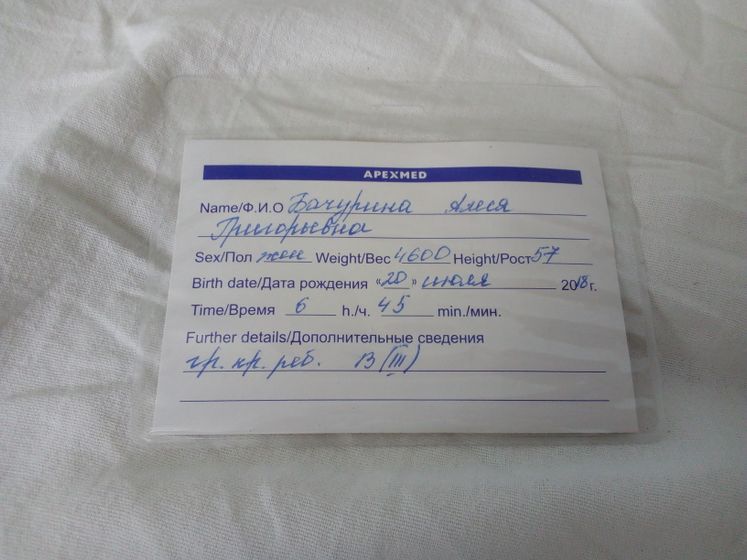 APEXMED
Name/Ф.И.О Бачурина Алеся
Григорьевна
Sex/Пол жен Weight/Вес 4600 Height/Рост 57
Birth date/Дата рождения «20» июля 2018 г.
Time/Время 6 h./ч. 45 min./мин.
Further details/Дополнительные сведения
гр. кр. реб. B (III)